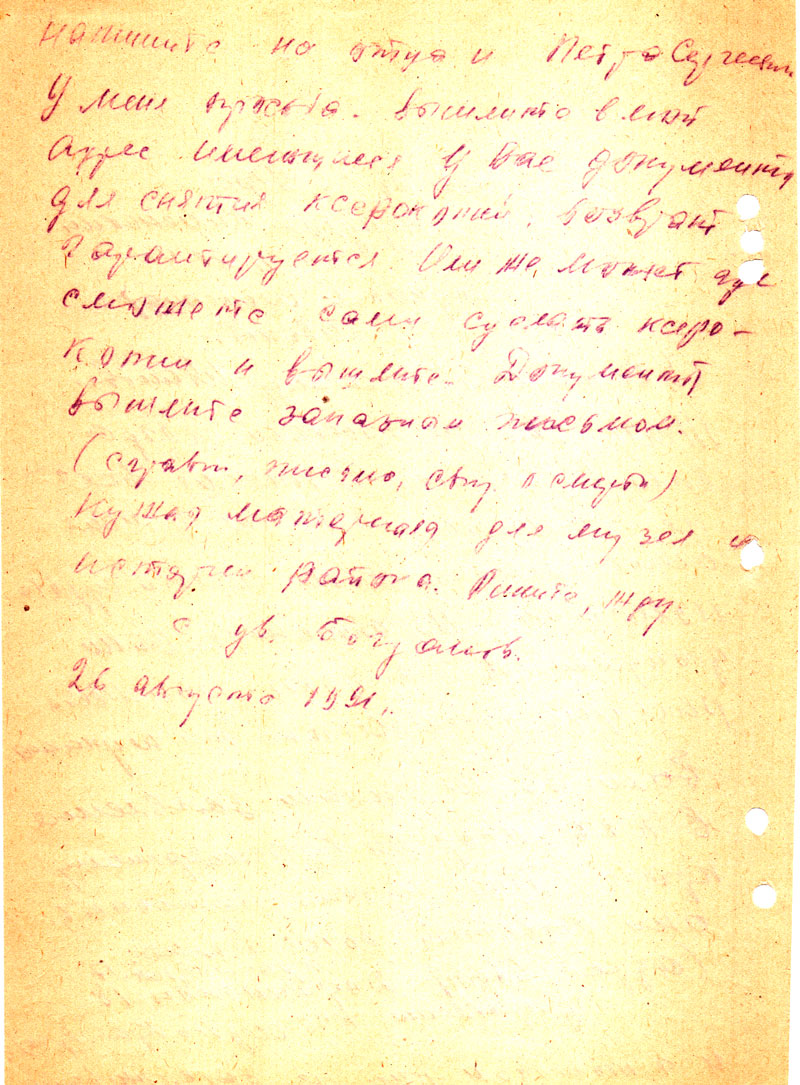 Напишите на отца и Петра Сергеевич
У меня просьба. Вышлите в мой
адрес имеющиеся у Вас документы
для снятия ксерокопий, возврат
гарантируется. Или же, может
сможете сами сделать ксеро-
копии и вышлите. Документы
вышлите заказным письмом.
(справки, письма, о смерти)
Нужна материала для музея и
истории района. Пишите, жду.
с ув. Богданов.
26 августа 1991.